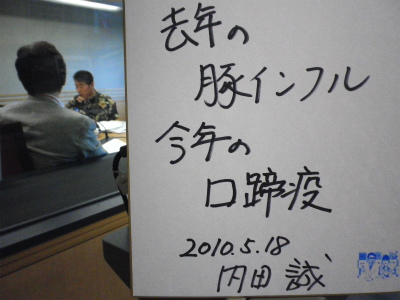 去年の
豚インフル
今年の
口蹄疫
2010.5.18
内田 誠